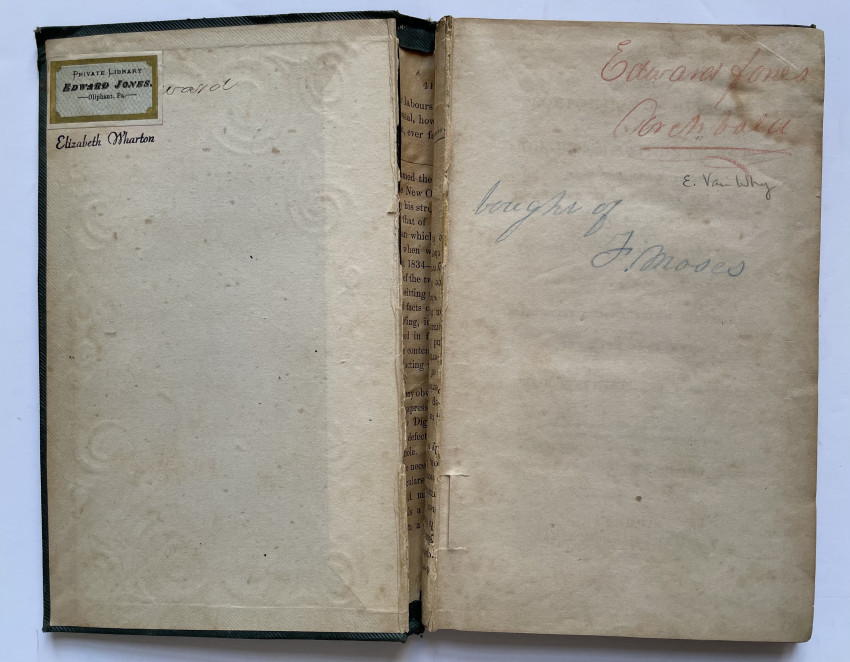 PRIVATE LIBRARY
EDWARD JONES.
Oliphant, Pa.
ward
Elizabeth Wharton
41
labours
ial, how
, ever fa
ned the
New C
his stre
that of
n which
when w
1834—
of the tw
sitting
facts
ing, i
d in f
conten
cting
ny obv
ppress
Dig
defect
ole.
nece
ulars
d m
s a
n a
Edward Jones
Archbald
E. Van Why
bought of
F. Moses